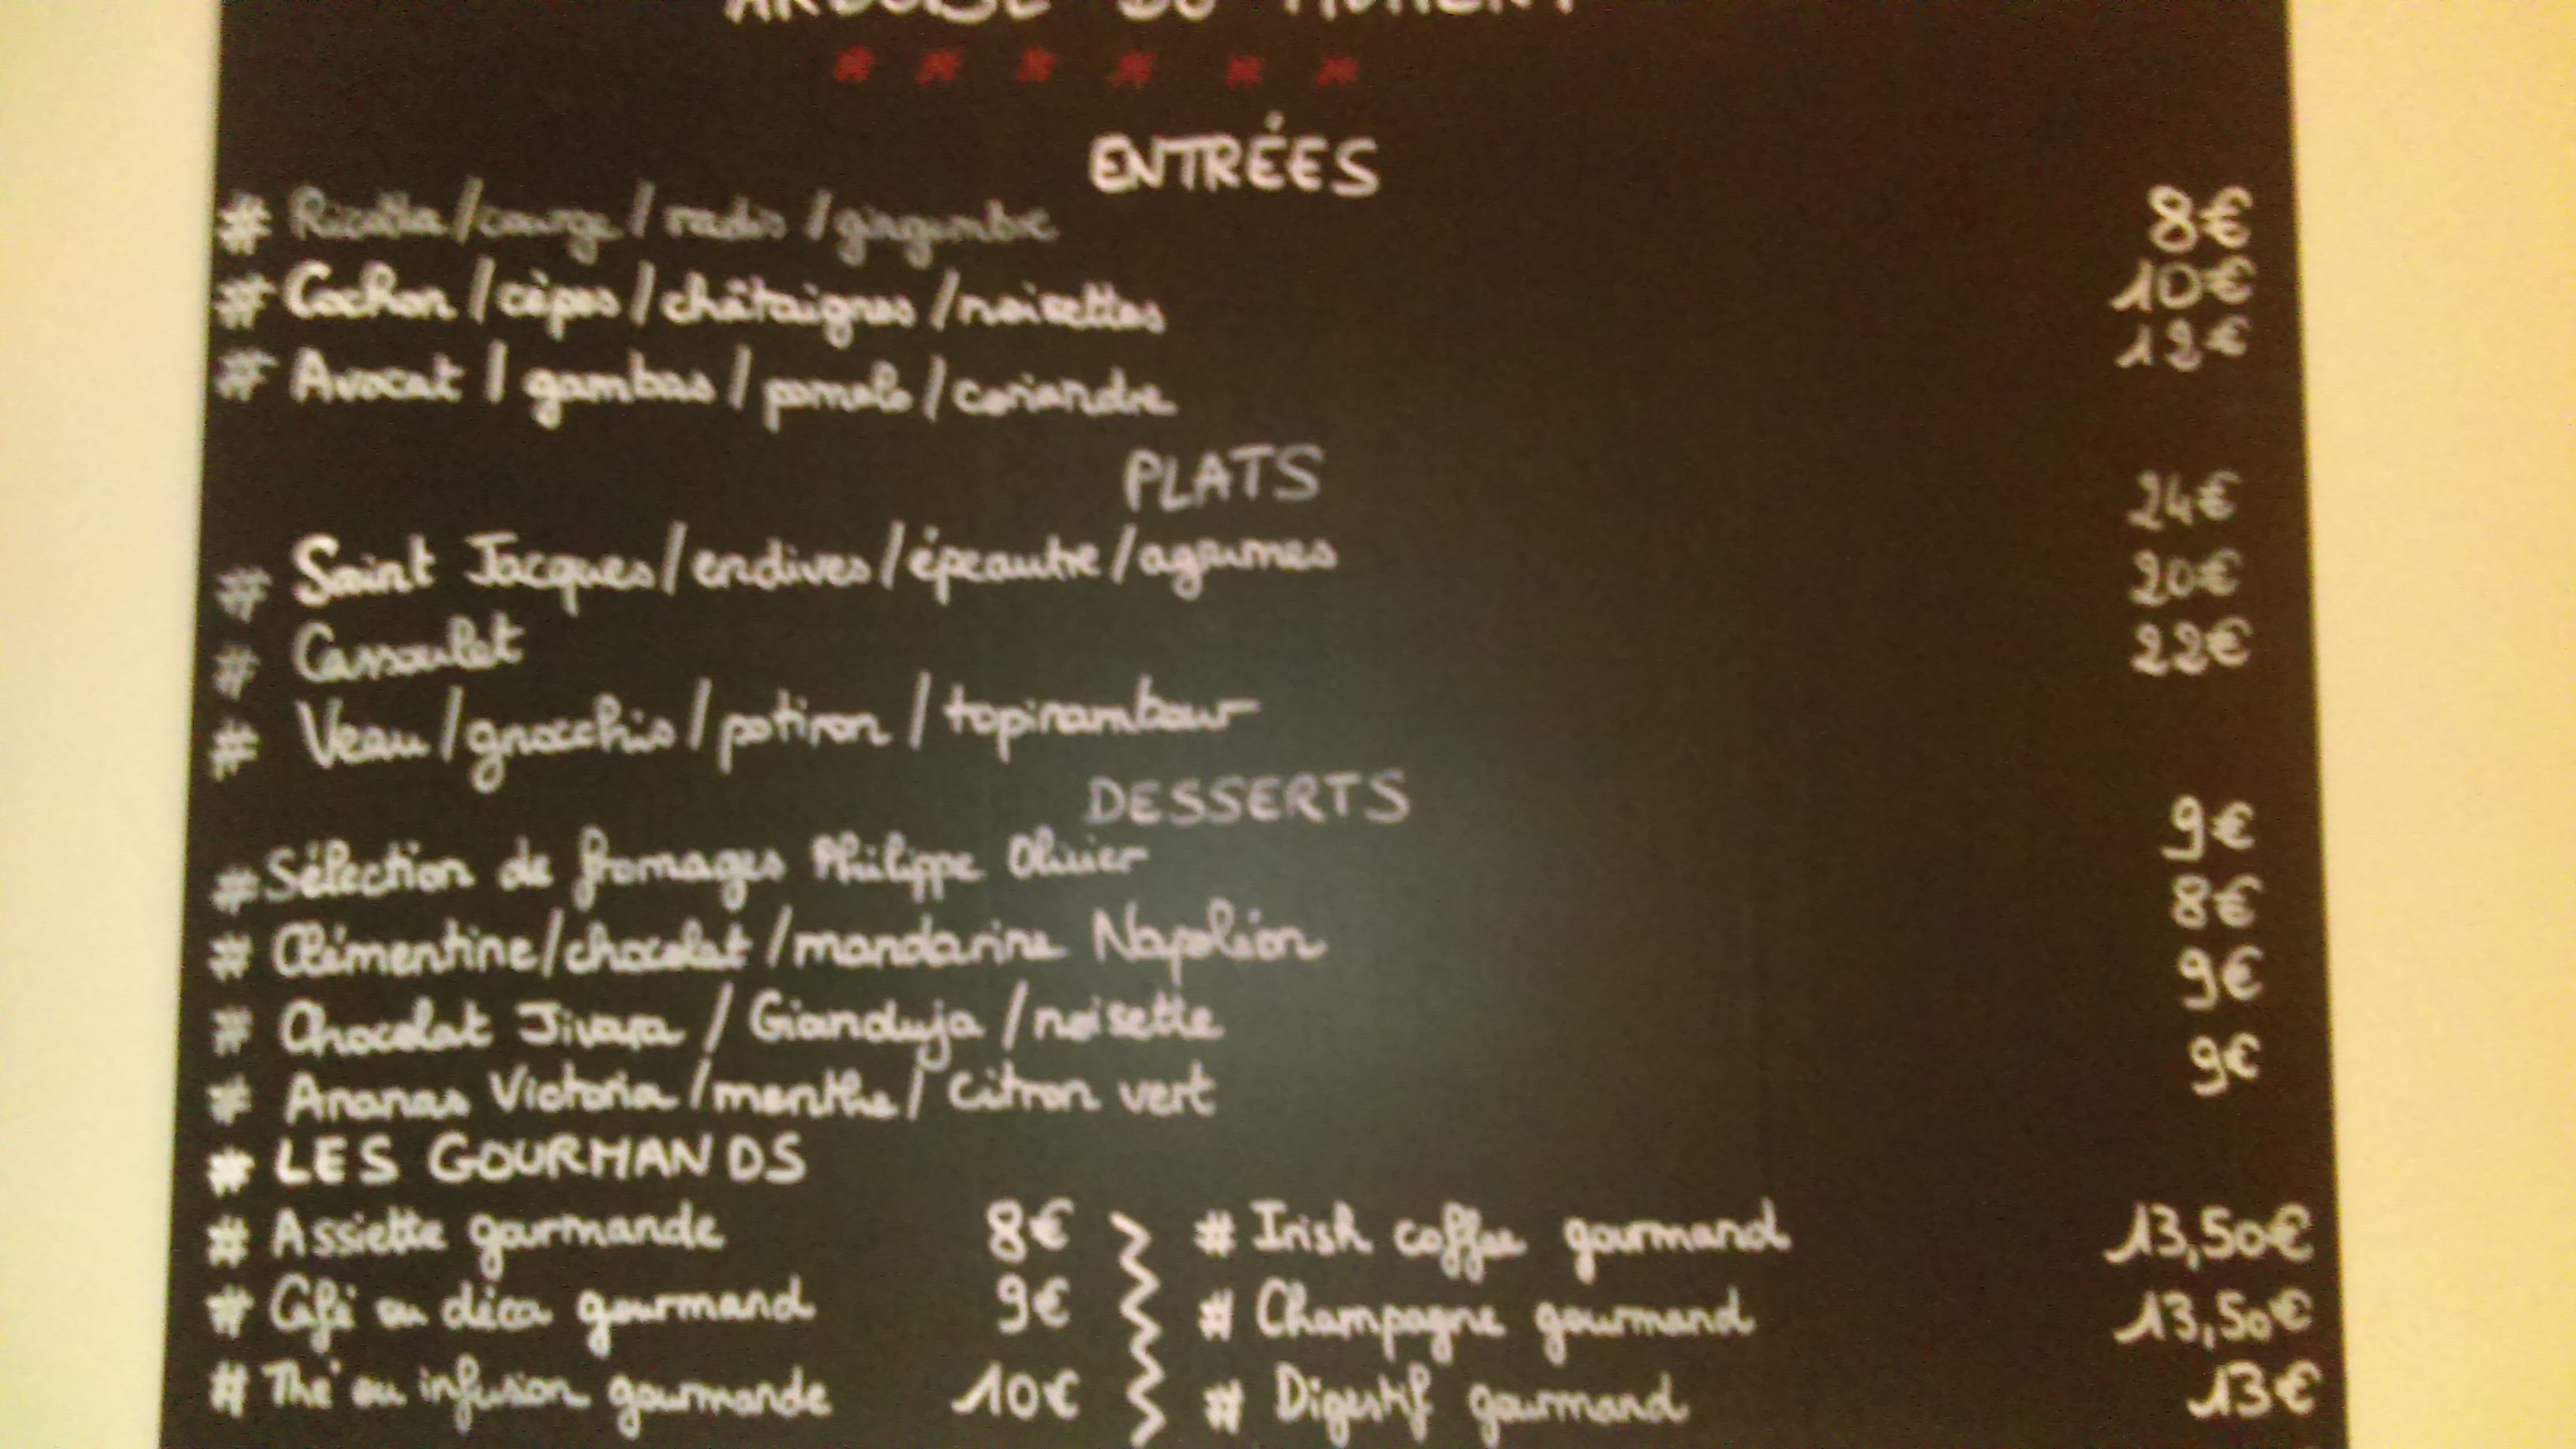 ARDOISE DU MOMENT
ENTRÉES
# Ricotta/courge/radis/gingembre 8€
# Cochon/cèpes/châtaignes/noisettes 10€
# Avocat/gambas/pomelo/coriandre 12€
PLATS
# Saint Jacques/endives/épeautre/agrumes 24€
# Cassoulet 20€
# Veau/gnocchis/potiron/topinambour 22€
DESSERTS
# Sélection de fromages Philippe Olivier 9€
# Clémentine/chocolat/mandarine Napoléon 8€
# Chocolat Jivara/Gianduja/noisette 9€
# Ananas Victoria/menthe/citron vert 9€
# LES GOURMANDS
# Assiette gourmande 8€ # Irish coffee gourmand 13,50€
# Café ou déca gourmand 9€ # Champagne gourmand 13,50€
# Thé ou infusion gourmande 10€ # Digestif gourmand 13€